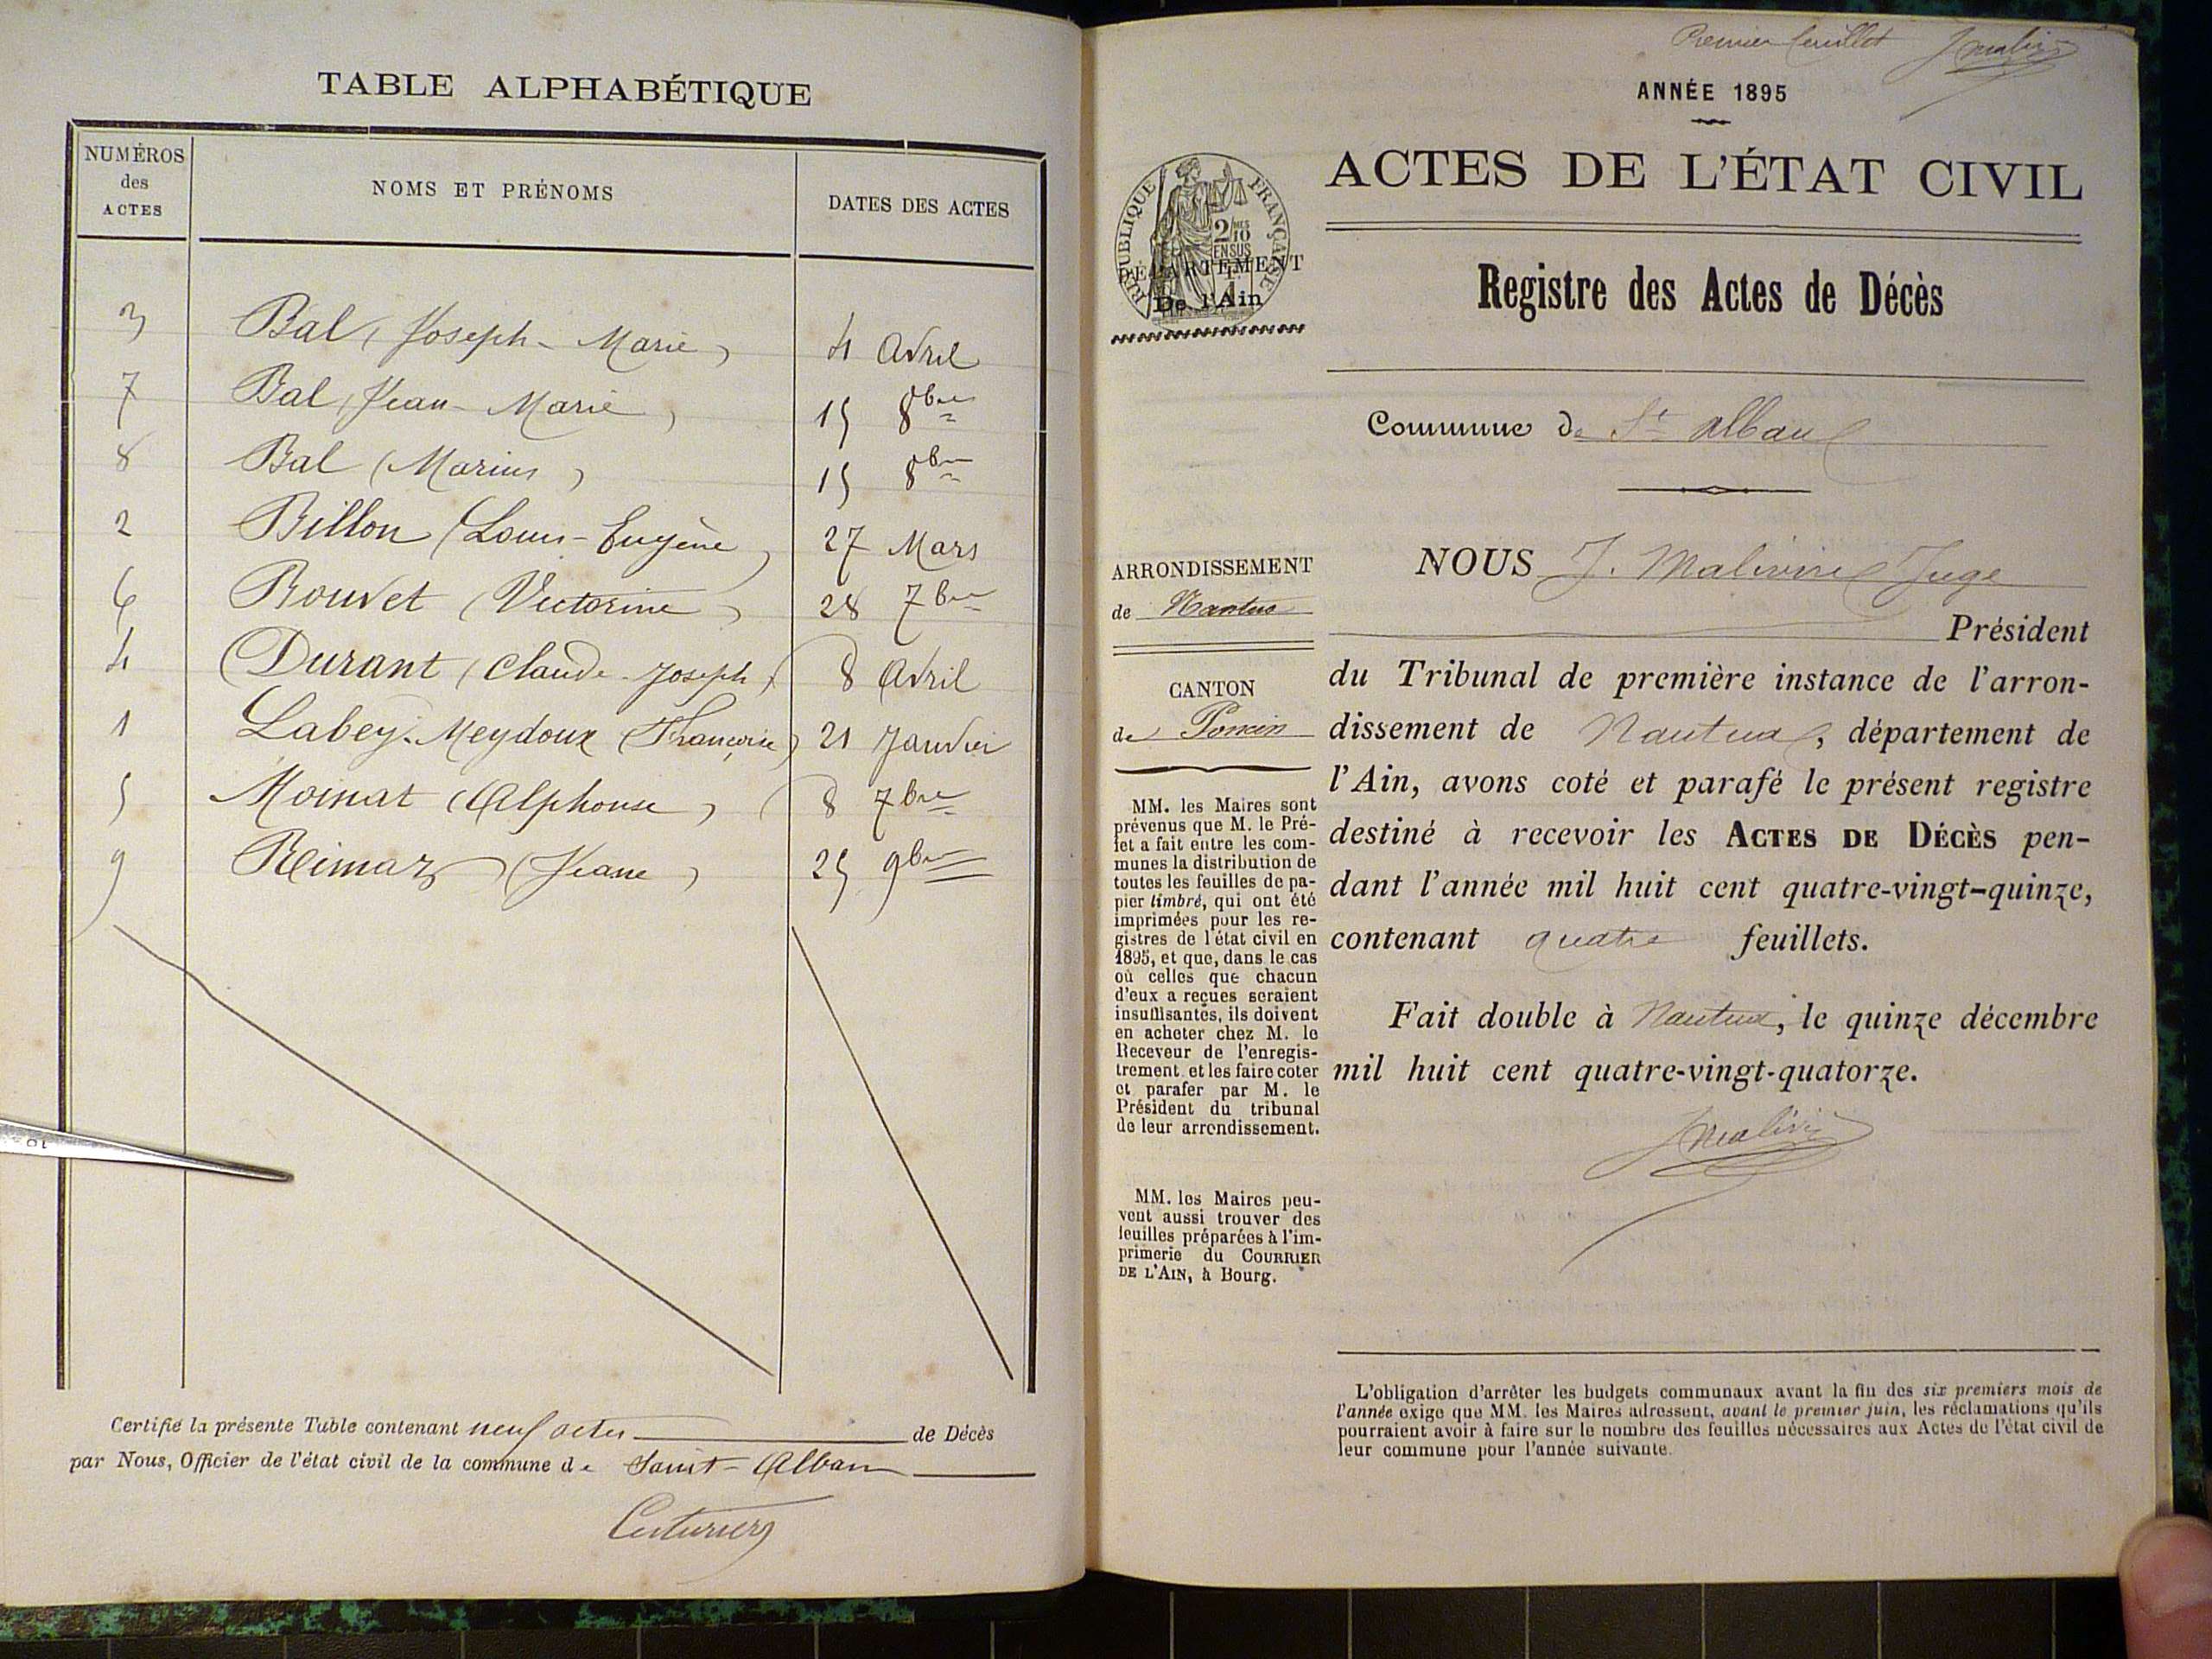 TABLE ALPHABÉTIQUE
NUMÉROS des ACTES
NOMS ET PRÉNOMS
DATES DES ACTES
3 Bal (Joseph-Marie) 4 Avril
7 Bal (Jean-Marie) 15 8bre
8 Bal (Marius) 15 8bre
2 Billon (Louis-Eugène) 27 Mars
6 Bouvet (Victorine) 28 7bre
4 Durant (Claude-Joseph) 8 Avril
1 Labey-Meydoux (Françoise) 21 Janvier
5 Moinat (Alphonse) 8 7bre
9 Reimaz (Jeane) 25 9bre
Certifié la présente Table contenant neuf actes de Décès
par Nous, Officier de l'état civil de la commune de Saint-Alban
Premier feuillet
ANNÉE 1895
ACTES DE L'ÉTAT CIVIL
RÉPUBLIQUE FRANÇAISE
2/MES 10
EN SUS
DÉPARTEMENT
De l'Ain
Registre des Actes de Décès
Commune de St Alban
ARRONDISSEMENT
de Nantua
CANTON
de Poncin
MM. les Maires sont
prévenus que M. le Pré-
fet a fait entre les com-
munes la distribution de
toutes les feuilles de pa-
pier timbré, qui ont été
imprimées pour les re-
gistres de l'état civil en
1895, et que, dans le cas
où celles que chacun
d'eux a reçues seraient
insuffisantes, ils doivent
en acheter chez M. le
Receveur de l'enregis-
trement et les faire coter
et parafer par M. le
Président du tribunal
de leur arrondissement.
MM. les Maires peu-
vent aussi trouver des
feuilles préparées à l'im-
primerie du COURRIER
DE L'AIN, à Bourg.
NOUS J. Juge
Président
du Tribunal de première instance de l'arron-
dissement de Nantua, département de
l'Ain, avons coté et parafé le présent registre
destiné à recevoir les ACTES DE DÉCÈS pen-
dant l'année mil huit cent quatre-vingt-quinze,
contenant quatre feuillets.
Fait double à Nantua, le quinze décembre
mil huit cent quatre-vingt-quatorze.
L'obligation d'arrêter les budgets communaux avant la fin des six premiers mois de
l'année exige que MM. les Maires adressent, avant le premier juin, les réclamations qu'ils
pourraient avoir à faire sur le nombre des feuilles nécessaires aux Actes de l'état civil de
leur commune pour l'année suivante.